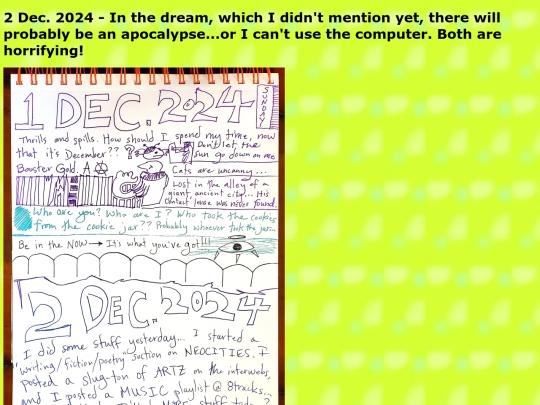 2 Dec. 2024 - In the dream, which I didn't mention yet, there will
probably be an apocalypse...or I can't use the computer. Both are
horrifying!
1 DEC. 2024
SUNDAY
Thrills and spills. How should I spend my time, now
that it's December??
Don't let the
sun go down on me
Booster Gold. A
Cats are uncanny...
Lost in the alley of a
giant, ancient city... His
contact lense was never found.
Who are you? Who are I? Who took the cookies
from the cookie jar?? Probably whoever took the jar...
Be in the NOW → It's what you've got!!!
2 DEC. 2024
I did some stuff yesterday... I started a
"writing/fiction/poetry" section on NEOCITIES. I
posted a slug-ton of ARTZ on the interwebs,
and I posted a MUSIC playlist @ 8tracks...
more stuff